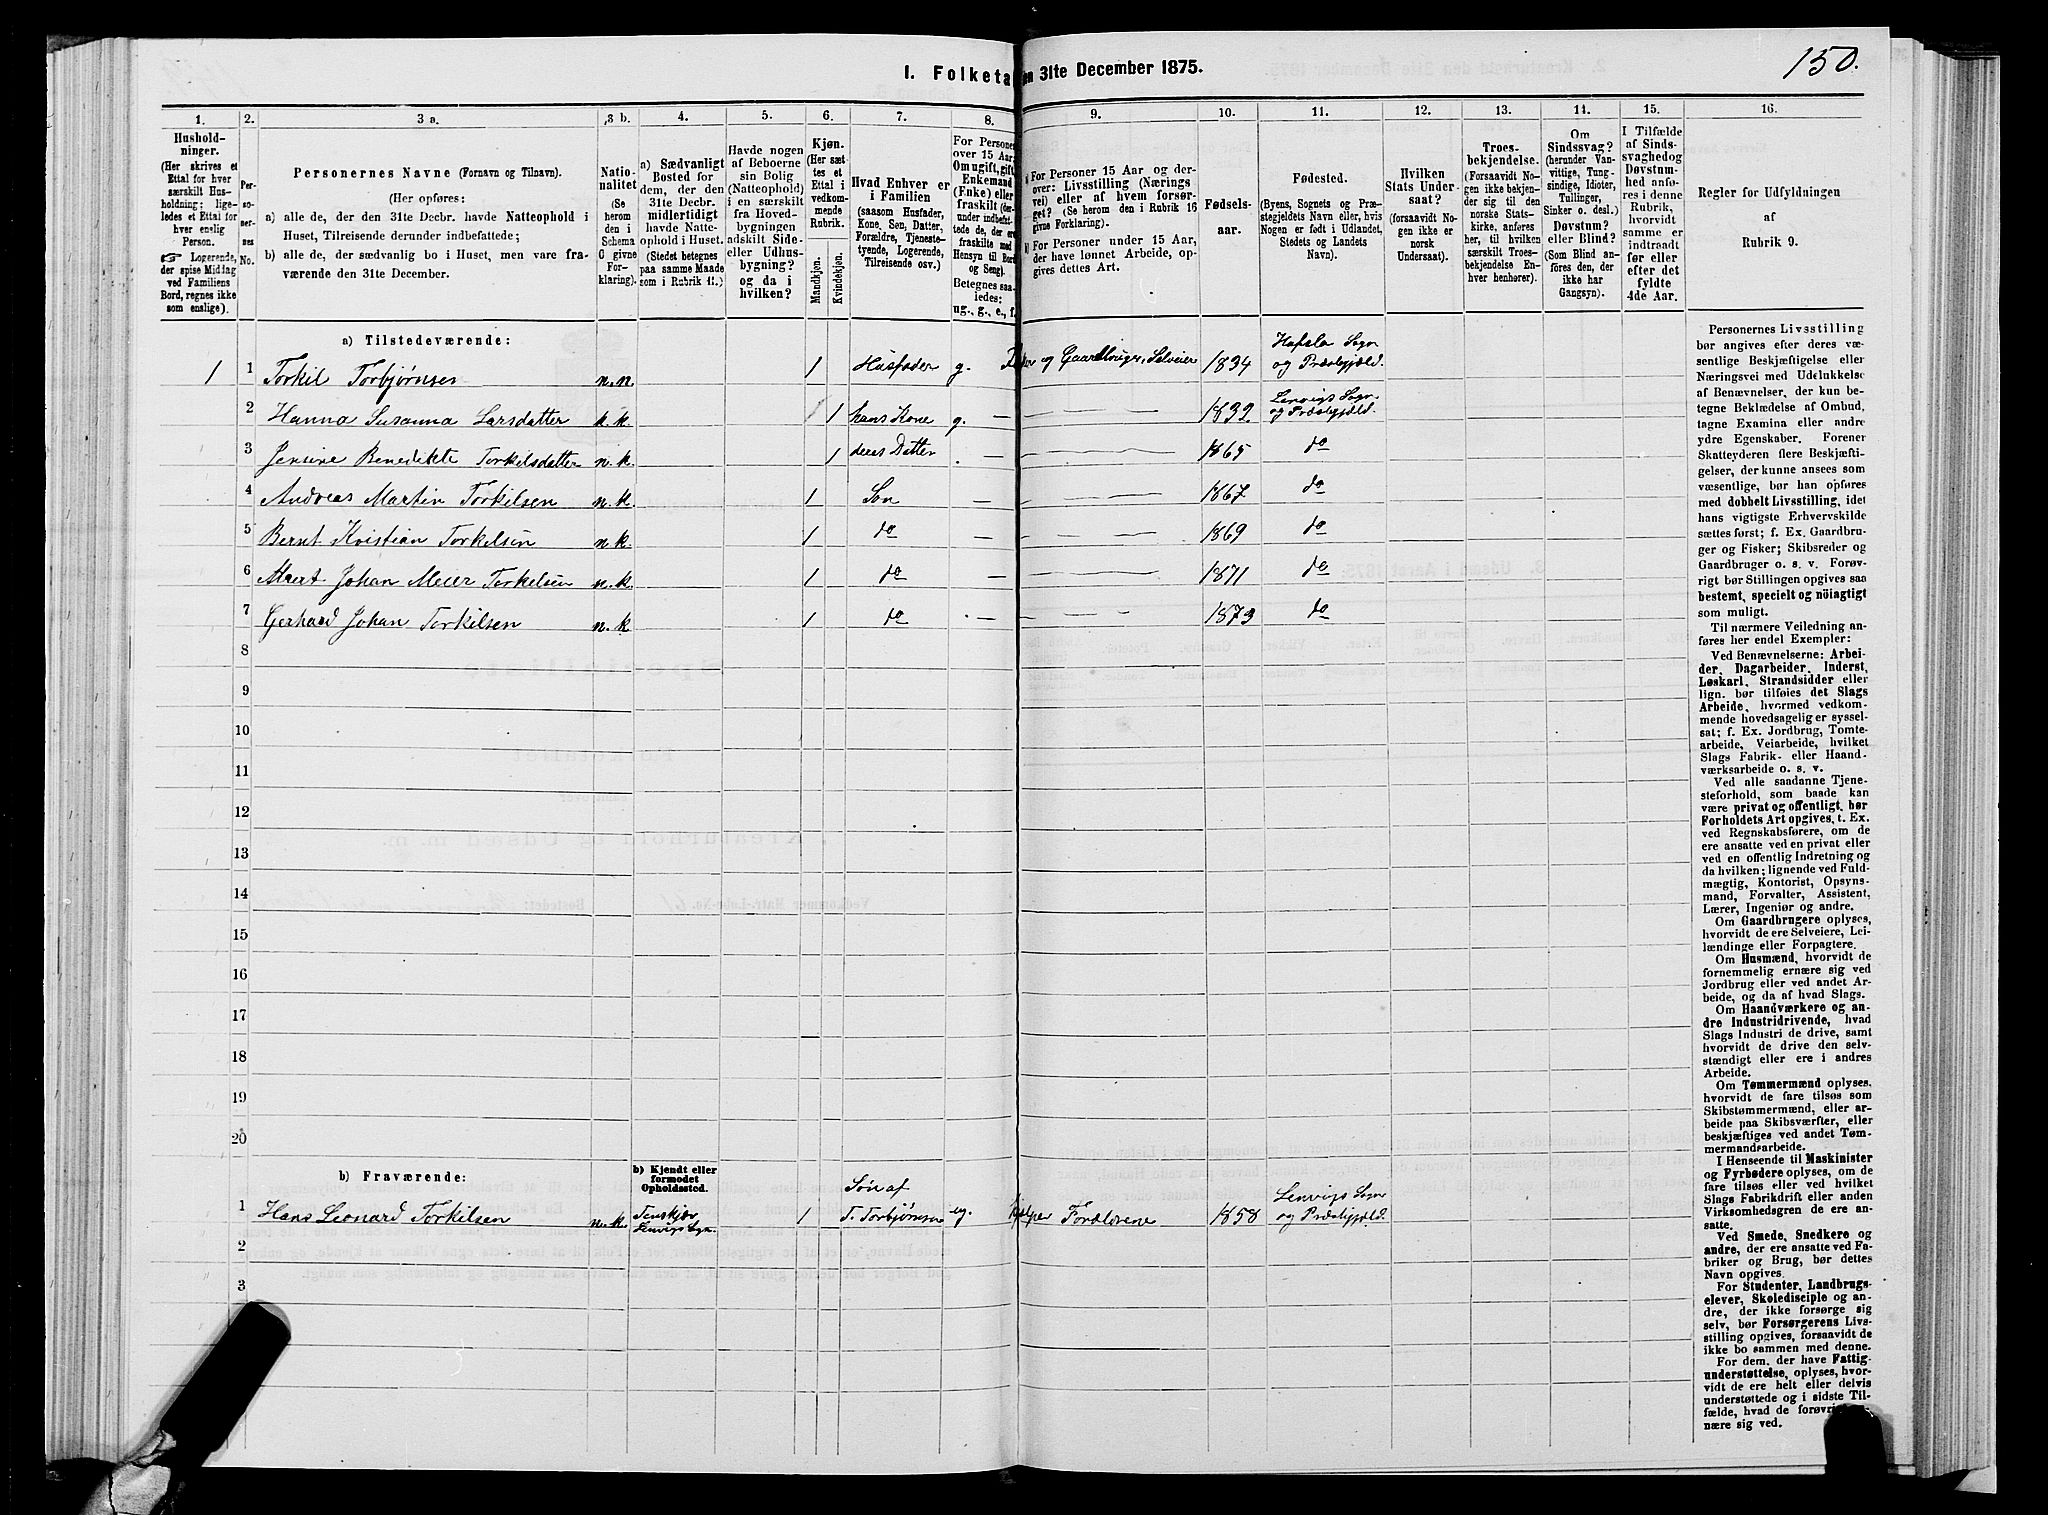 150.
I. Folketa en 31te December 1875.
1. 2. 3 a. 3 b. 4. 5. 6. 7. 8. 9. 10. 11. 12. 13. 14. 15. 16.
Hushold-
ninger.
(Her skrives et
Ettal for hver
særskilt Hus-
holdning; lige-
ledes et Ettal for
hver enslig
Person.
Logerende,
der spise Middag
ved Familiens
Bord, regnes ikke
som enslige).
Per-
so-
ner-
nes
No.
Personernes Navne (Fornavn og Tilnavn).
(Her opføres:
a) alle de, der den 31te Decbr. havde Natteophold i
Huset, Tilreisende derunder indbefattede;
b) alle de, der sædvanlig bo i Huset, men vare fra-
værende den 31te December.
Natio-
nalitet
(Se
herom
den i
Schema
C givne
For-
klaring).
a) Sædvanligt
Bosted for
dem, der den
31te Decbr.
midlertidigt
havde Natte-
ophold i Huset.
(Stedet betegnes
paa samme Maade
som i Rubrik 11.)
Havde nogen
af Beboerne
sin Bolig
(Natteophold)
i en særskilt
fra Hoved-
bygningen
adskilt Side-
eller Udhus-
bygning?
og da i
hvilken?
Kjøn.
(Her sæt-
tes et
Ettal i
vedkom-
mende
Rubrik.
Mandkjøn.
Kvindekjøn.
Hvad Enhver er
i Familien
(saasom Husfader,
Kone, Søn, Datter,
Forældre, Tjeneste-
tyende, Logerende,
Tilreisende osv.).
For Personer
over 15 Aar:
Om ugift, gift,
Enkemand
(Enke) eller
fraskilt (der-
under indbefat-
tede de, der ere
fraskilte med
Hensyn til Bord
og Seng).
Betegnes saa-
ledes:
ug., g., e., f.
For Personer 15 Aar og der-
over: Livsstilling (Nærings-
vei) eller af hvem forsør-
get? (Se herom den i Rubrik 16
givne Forklaring).
For Personer under 15 Aar,
der have lønnet Arbeide, op-
gives dettes Art.
Fødsels-
aar.
Fødested.
(Byens, Sognets og Præ-
stegjeldets Navn eller, hvis
Nogen er født i Udlandet,
Stedets og Landets
Navn).
Hvilken
Stats Under-
saat?
(forsaavidt No-
gen ikke er
norsk
Undersaat).
Troes-
bekjendelse.
(Forsaavidt No-
gen ikke bekjen-
der sig til den
norske Stats-
kirke, anføres
her, til hvilken
Troesbekjendelse En-
hver henhører).
Om
Sindssvag?
(herunder Van-
vittige, Tung-
sindige, Idioter,
Tullinger,
Sinker o. desl.)
Døvstum?
eller Blind?
(Som Blind an-
føres den, der
ikke har
Gangsyn).
I Tilfælde
af Sinds-
svaghed og
Døvstum-
hed anfø-
res i denne
Rubrik,
hvorvidt
samme er
indtraadt
før eller
efter det
fyldte
4de Aar.
Regler for Udfyldningen
af
Rubrik 9.
a) Tilstedeværende:
1 1 Torkil Torbjørnsen n.n. 1 Husfader g. og Gaardbruger, Selveier 1834 Hafslo Sogn
og Præstegjæld.
2 Hanna Susanna Larsdatter k.k. 1 hans Kone g. — 1832 Lenvigs Sogn
og Præstegjæld.
3 Jensine Benedikte Torkilsdatter n.k. 1 deres Datter — 1865 do
4 Andreas Martin Torkilsen n.k. 1 Søn — 1867 do
5 Bernt Kristian Torkilsen n.k. 1 do — 1869 do
6 Johan Meier Torkilsen n.k. 1 do — 1871 do
7 Gerhard Johan Torkilsen n.k. 1 do — 1873 do
8
9
10
11
12
13
14
15
16
17
18
19
20
b) Fraværende:
b) Kjendt eller
formodet
Opholdssted.
1 Hans Leonard Torkilsen n.k. Lenvigs Sogn. 1 Søn af
T. Torbjørnsen ug. Hjelper Forældrene 1858 Lenvigs Sogn
og Præstegjæld.
2
3
Personernes Livsstilling
bør angives efter deres væ-
sentlige Beskjæftigelse eller
Næringsvei med Udelukkelse
af Benævnelser, der kun be-
tegne Beklædelse af Ombud,
tagne Examina eller andre
ydre Egenskaber. Forener
Skatteyderen flere Beskjæfti-
gelser, der kunne ansees som
væsentlige, bør han opføres
med dobbelt Livsstilling, idet
hans vigtigste Erhvervskilde
sættes først; f. Ex. Gaardbru-
ger og Fisker; Skibsreder og
Gaardbruger o. s. v. Forøv-
rigt bør Stillingen opgives saa
bestemt, specielt og nöiagtigt
som muligt.
Til nærmere Veiledning an-
føres her endel Exempler:
Ved Benævnelserne: Arbei-
der, Dagarbeider, Inderst,
Løskarl, Strandsidder eller
lign. bør tilføies det Slags
Arbeide, hvormed vedkom-
mende hovedsagelig er syssel-
sat; f. Ex. Jordbrug, Tomte-
arbeide, Veiarbeide, hvilket
Slags Fabrik- eller Haand-
værksarbeide o. s. v.
Ved alle saadanne Tjene-
steforhold, som baade kan
være privat og offentligt, bør
Forholdets Art opgives, t. Ex.
ved Regnskabsførere, om de
ere ansatte ved en privat eller
ved en offentlig Indretning og
da hvilken; lignende ved Fuld-
mægtig, Kontorist, Opsyns-
mand, Forvalter, Assistent,
Lærer, Ingeniør og andre.
Om Gaardbrugere oplyses,
hvorvidt de ere Selveiere, Lei-
lændinge eller Forpagtere.
Om Husmænd, hvorvidt de
fornemmelig ernære sig ved
Jordbrug eller ved andet Ar-
beide, og da af hvad Slags.
Om Haandværkere og an-
dre Industridrivende, hvad
Slags Industri de drive, samt
hvorvidt de drive den selv-
stændigt eller ere i andres
Arbeide.
Om Tømmermænd oplyses,
hvorvidt de fare tilsøs som
Skibstømmermænd, eller ar-
beide paa Skibsværfter, eller
beskjæftiges ved andet Tøm-
mermandsarbeide.
I Henseende til Maskinister
og Fyrbødere oplyses, om de
fare tilsøs eller ved hvilket
Slags Fabrikdrift eller anden
Virksomhedsgren de ere an-
satte.
Ved Smede, Snedkere og
andre, der ere ansatte ved Fa-
briker og Brug, bør dettes
Navn opgives.
For Studenter, Landbrugs-
elever, Skoledisciple og an-
dre, der ikke forsørge sig
selv, bør Forsørgerens Livs-
stilling opgives, forsaavidt de
ikke bo sammen med denne.
For dem, der have Fattig-
understøttelse, oplyses, hvor-
vidt de ere helt eller delvis
understøttede og i sidste Til-
fælde, hvad de forøvri
nære sig ved.